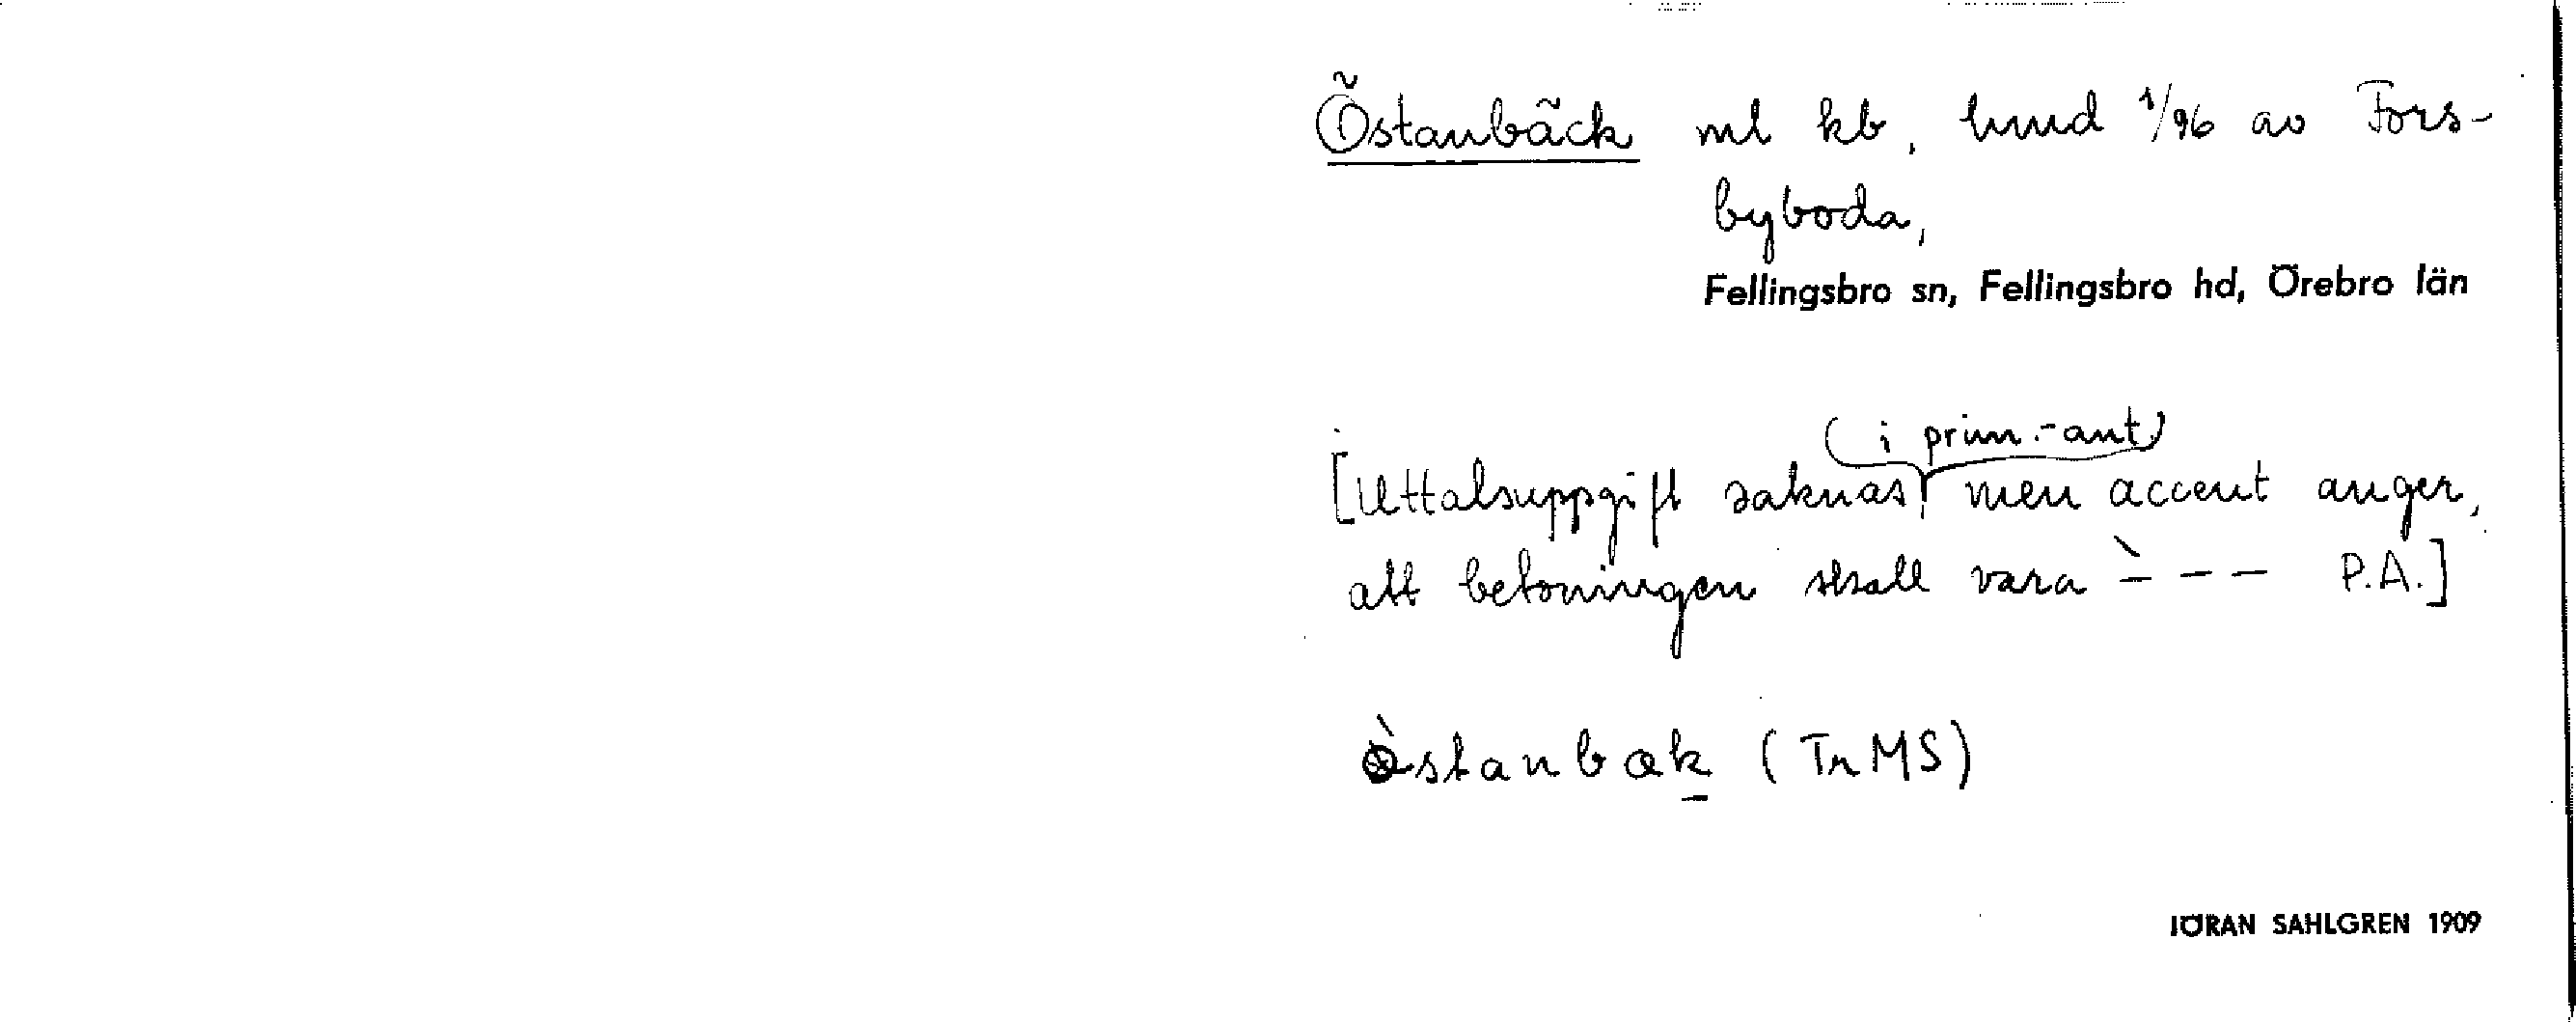 Östanbäck ml kb, hmd 1/96 av Fors-
byboda,
Fellingsbro sn, Fellingsbro hd, Örebro län
(i prim.-ant)
[Uttalsuppgift saknas, men accent anger,
att betoningen skall vara `- - - P.A.]
östanbæk (Tr MS)
JÖRAN SAHLGREN 1909